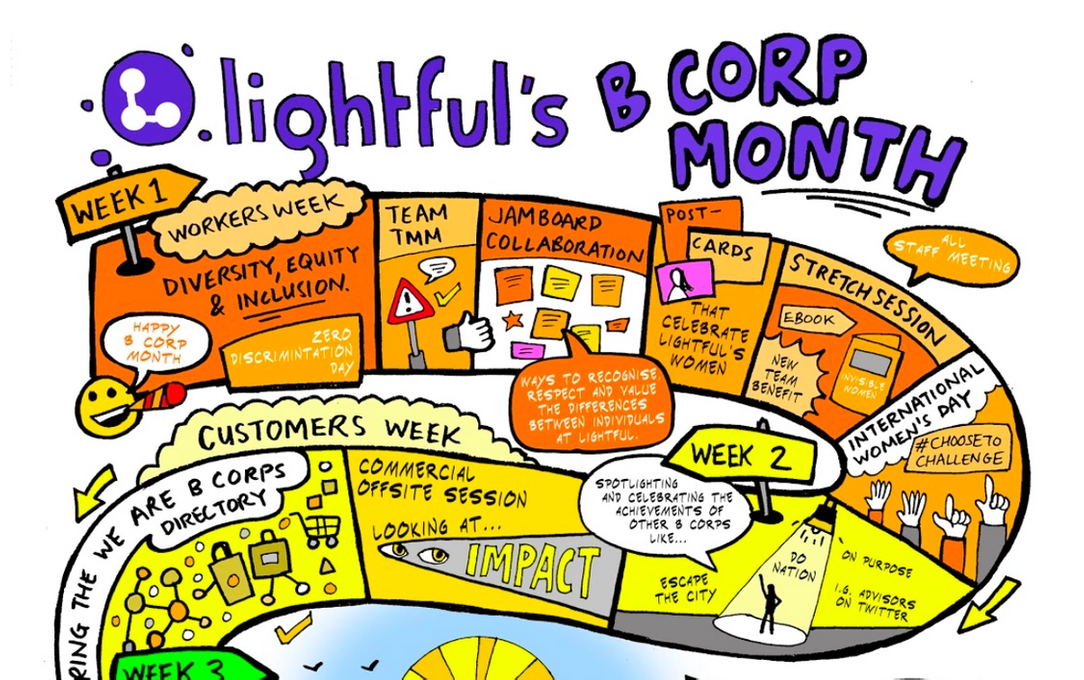 lightful's B CORP
MONTH
WEEK 1
WORKERS WEEK
DIVERSITY, EQUITY
& INCLUSION.
HAPPY
B CORP
MONTH
ZERO
DISCRIMINTATION
DAY
TEAM
TMM
JAMBOARD
COLLABORATION
WAYS TO RECOGNISE,
RESPECT AND VALUE
THE DIFFERENCES
BETWEEN INDIVIDUALS
AT LIGHTFUL.
POST-
CARDS
THAT
CELEBRATE
LIGHTFUL'S
WOMEN
STRETCH SESSION
EBOOK
NEW
TEAM
BENEFIT
INVISIBLE
WOMEN
ALL
STAFF MEETING
INTERNATIONAL
WOMEN'S DAY
#CHOOSETO
CHALLENGE
WEEK 2
CUSTOMERS WEEK
SPOTLIGHTING
AND CELEBRATING THE
ACHIEVEMENTS OF
OTHER B CORPS
LIKE...
ESCAPE
THE CITY
DO
NATION
ON PURPOSE
I.G. ADVISORS
ON TWITTER
COMMERCIAL
OFFSITE SESSION
LOOKING AT...
IMPACT
RING THE WE ARE B CORPS
DIRECTORY
WEEK 3